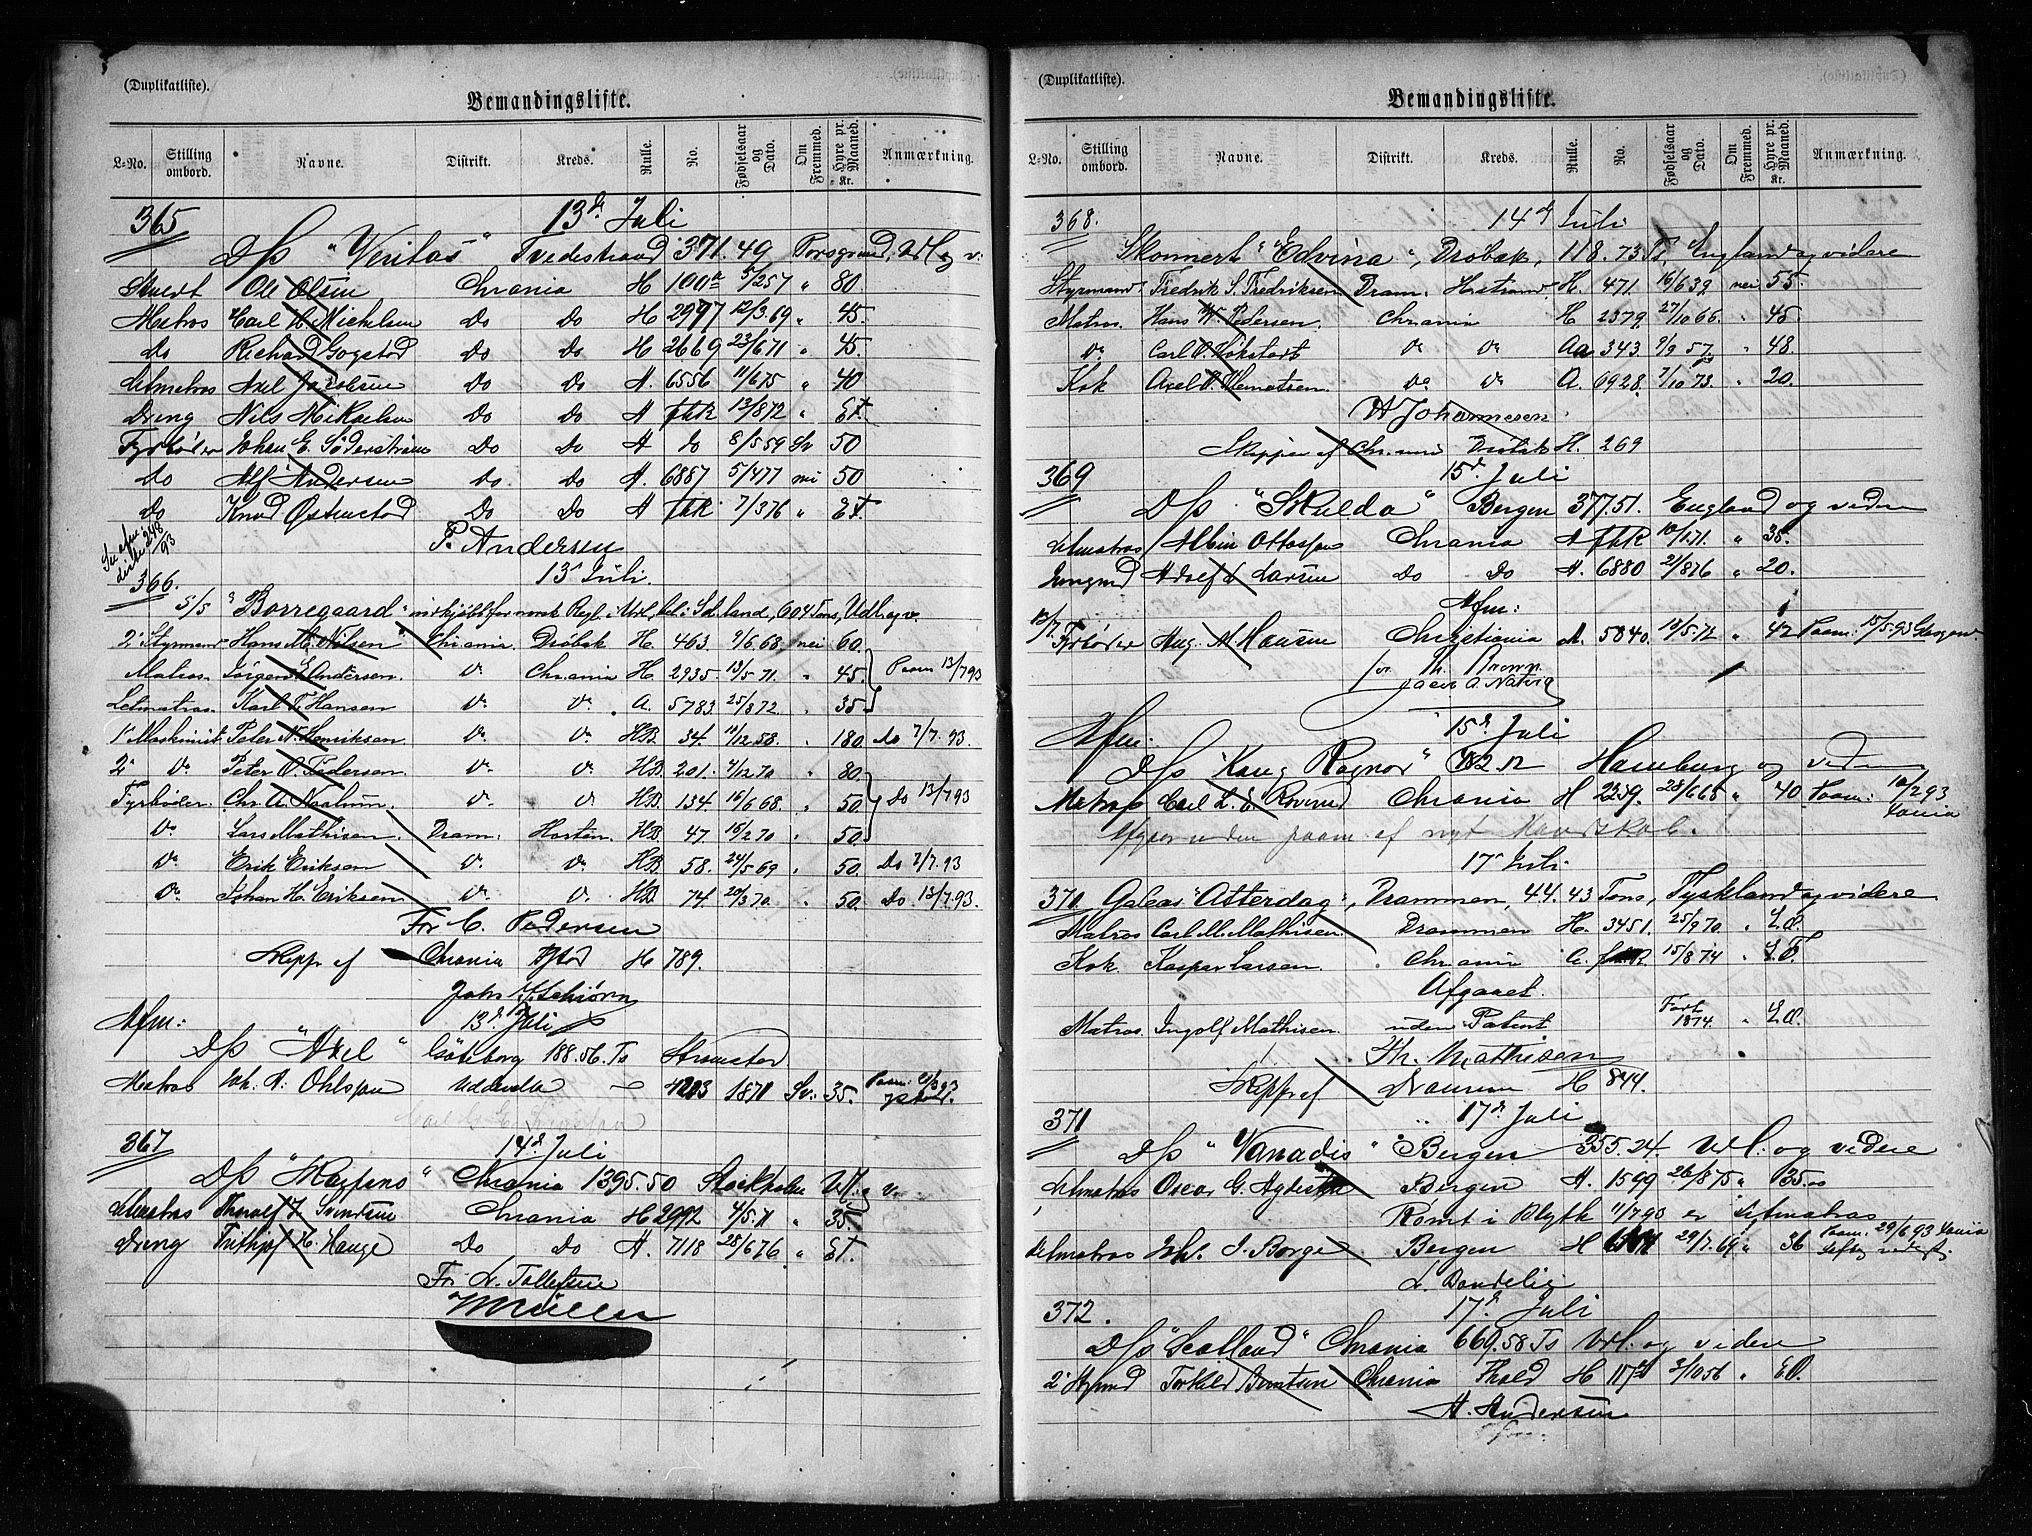 (Duplikatliste).
Bemandingsliste.
L-No. Stilling ombord. Navne. Distrikt. Kreds. Rulle. No. Fødselsaar og Dato. Om Fremmed. Hyre pr. Maaned. Kr. Anmærkning.
365 13de Juli
D/S "Veritas" Tvedestrand 371.49 Porsgrund, Udl og v.
Stuert Ole Olsen Chrania H 100 5/2 57 " 80
Matros Carl H. Mickelsen Do Do H 2977 12/3.69 " 45.
Do Richard Gogstad Do Do H 2669 23/6 71 " 45.
Letmatros Axel Jacobsen Do Do A. 6556 11/6 75 " 40
Dreng Nils Mikaelsen Do Do A fkk 13/8 72 " Et.
Fyrbøder Johan E. Söderström Do Do A do 8/5 59 Sv 50
do Alf Andersen do do A. 6887 5/4 77 nei 50
do Knud Østenstad Do Do A fkk 7/3 76 " Et.
P. Andersen
366. 13de Juli.
S/S "Borregaard" indkjøbt for norsk Regl. i Udl, bel. i Skotland, 604 Tons, Udl. og v.
2. Styrmand Hans M. Nilsen Chrania. Drøbak H. 463. 9/6.68. nei 60.
Matros. Jörgen E. Andersen. do Chrania H. 2935. 13/5.71. " 45. Paam 13/7 93
Letmatros. Karl F. Hansen do do. A. 5783. 25/8 72. . 35
1e Maskinist Peter N. Henriksen. do. do. HB. 34. 10/12.58. . 180. do 7/7.93.
2. do. Peter O. Pedersen. do. do. HB. 201. 4/12 70 " 80.
Fyrbøder. Chr. A. Naalum. do. do HB. 134. 16/6 68. . 50. Do 13/7 93
do. Lars Mathisen. Dram. Horten. HB. 47. 16/2 70 . 50.
do. Erik Eriksen do. do. HB. 58. 24/5 69 . 50. Do 7/7.93
do. Johan H. Eriksen do. do. HB. 74. 20/3 70 . 50. Do 13/7.93.
For C. Pedersen
Skippr af Chrania H 789.
John Schiørn
Afm: 13de Juli
D/S "Axel" Göteborg 188.56. Ts Strømstad
Matros Joh. A. Ohlsson Uddevalla — 4203 1871 Sv. 35.
367 14de Juli
D/S "Kong " Chrania 1395.50 Stockholm Udl. og v.
Letmatros Thorolf J. Svendsen Chrania H 2992 4/5.71 " 35
Dreng Frithjof H. Hauge Do Do A. 7118 28/6 76 " Et.
For L. Tollefsen
WMüller
(Duplikatliste).
Bemandingsliste.
L-No. Stilling ombord. Navne. Distrikt. Kreds. Rulle. No. Fødselsaar og Dato. Om Fremmed. Hyre pr. Maaned. Kr. Anmærkning.
368. 14de Juli
Skonnert "Edvina", Drøbak, 118.73 Ts. England og videre
Styrmand. Fredrik S. Fredriksen Dram. Holmestrand. H. 471 16/6 39 nei 55.
Matros. Hans W. Pedersen. Chrania H. 2379. 27/10 66. . 45.
do Carl O. Hökstart do do Aa 343. 9/9 57 " 48.
Kok Axel O. Clementsen. do do A. 6928. 7/10 73. . 20.
W Johannesen
Skipper af Chrania Drøbak H. 269
369 15de Juli
D/S "Skulda" Bergen 377.51. England og videre
Letmatros Albin Ottosson Chrania A fkk 10/1.71. " 38.
Jungmd Adolf L. Larsen Do Do A. 6880 21/8 76 " 20.
Afm:
12/7. Fyrbøder Aug. M. Hansen Christiania A. 5040. 10/5.72 " 42 Paam: 15/5.93 Glasgow
for Th. Brown
Jacer A. Natvig
15de Juli
Afm:
D/S "Kong Ragnar" Hamburg og videre
Matros Carl L. E. Roverud Chrania H 2259. 28/6 68 " 40 Paam: 10/2 93 Xania
Afgaar uden paam. af nyt Mandskab.
17de Juli.
370 Galeas "Atterdag", Drammen, 44.43 Tons, Tyskland og videre
Matros Carl M. Mathisen. Drammen H. 3451. 25/9 70 . E.O.
Kok. Kasper Larsen. Chrania A. fkk. 15/8 74 . E.T.
Afgaaet.
Matros. Ingolf Mathisen. uden Patent Født 1874. " E.O.
Th. Mathisen
Skippr af Drammen H 844.
371 17de Juli
D/S "Vanadis" Bergen 355.24. Udl. og videre
Letmatros Oscar G. Bergen A. 1599 26/8 75 " 35.
Romt i Blyth 11/7 93 er Letmatros
Letmatros Joh. J. Borge Bergen H 29/7.69 " 36 Paam: 29/6 93 Xania
L. Dandelig
372. 17de Juli
D/S "Scotland" Chrania 669.58 Ts Udl. og videre
2. Stymd Torkild Berntsen Chrania Thold H 3/10 56 " E.O.
A. Andersen